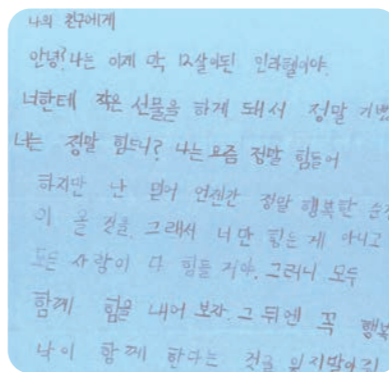 나의 친구에게
안녕? 나는 이제 막 12살이된 인라헬이야.
너한테 작은 선물을 하게 돼서 정말 기뻤
너는 정말 힘드니? 나는 요즘 정말 힘들어
하지만 난 믿어 언젠간 정말 행복한 순
이 올 것을. 그래서 너만 힘든 게 아니고
모든 사람이 다 힘들 거야. 그러니 모두
함께 힘을 내어 보자. 그 뒤엔 꼭 행복
낙이 함께 한다는 것을 잊지말아줘